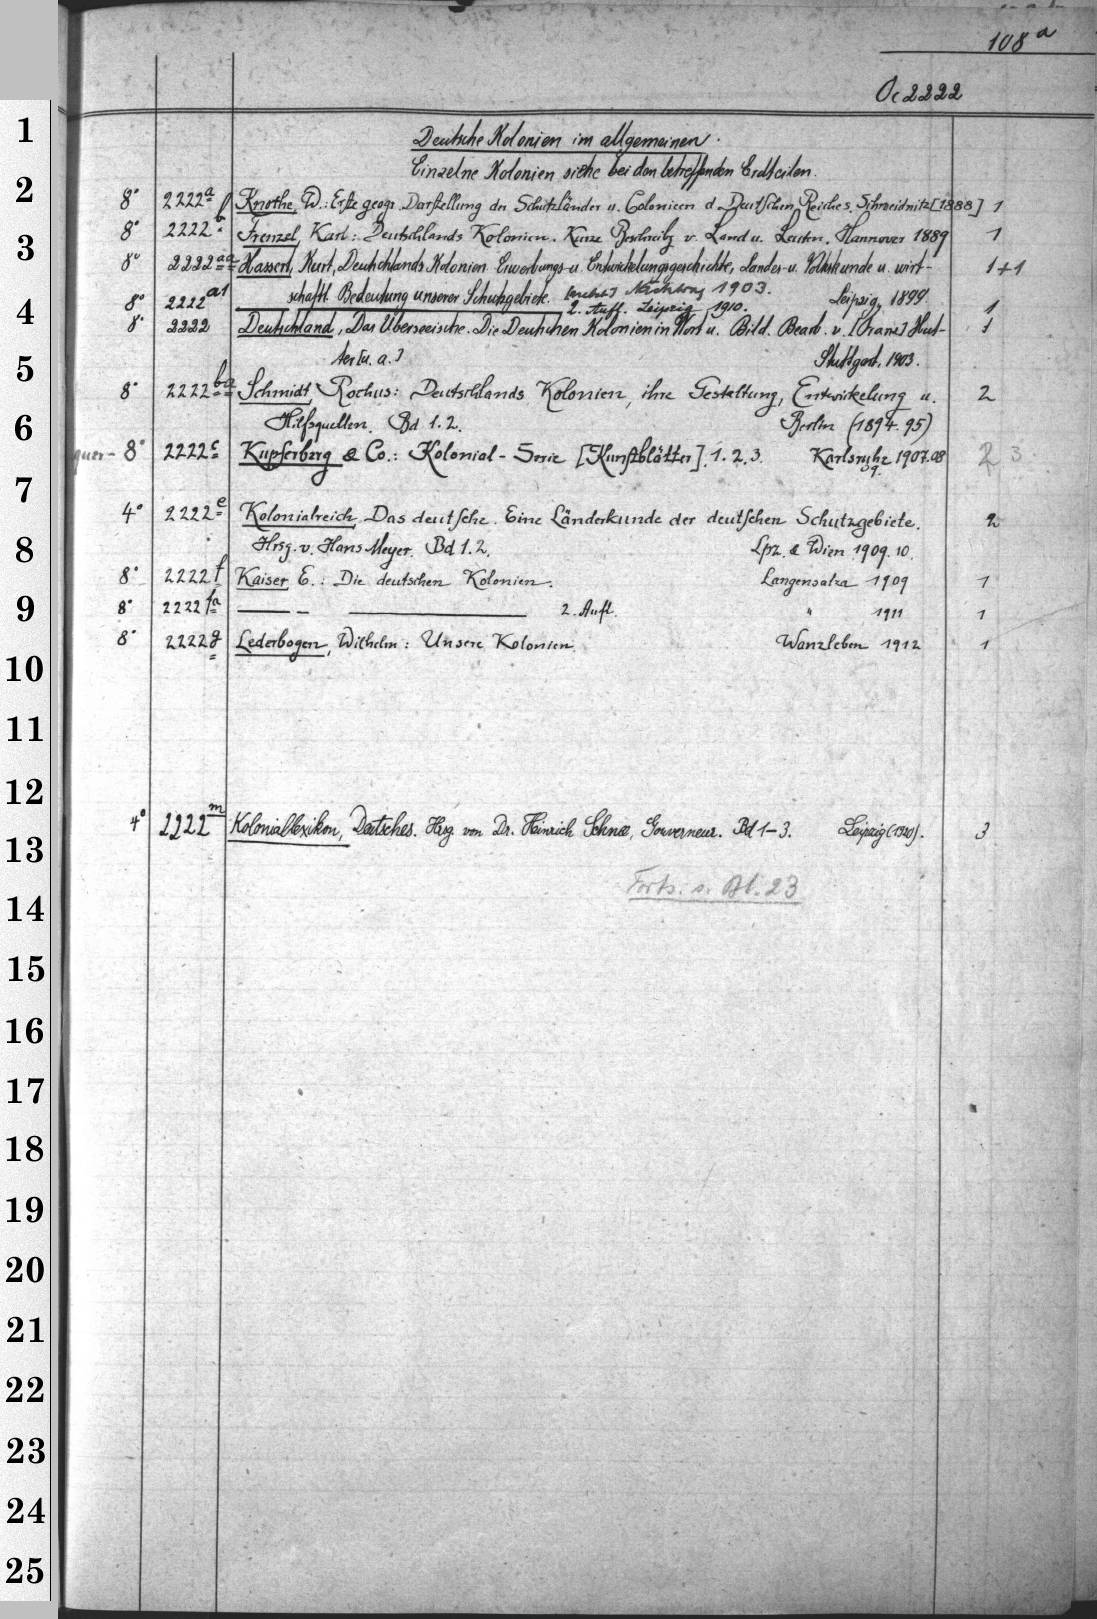 108 a
Oc 2222
Deutsche Kolonien im allgemeinen.
Einzelne Kolonien siehe bei den betreffenden Erdteilen.
8° 2222 a Knothe, W.: Erste geogr. Darstellung der Schutzländer u. Colonieen d. Deutschen Reiches. Schweidnitz [1888] 1
8° 2222 b Frenzel, Karl: Deutschlands Kolonien. Kurze Beschreibg v. Land u. Leuten. Hannover 1889 1
8° 2222 aa Hassert, Kurt, Deutschlands Kolonien. Erwerbungs- u. Entwickelungsgeschichte, Landes- u. Volkskunde u. wirt-
schaftl. Bedeutung unserer Schutzgebiete. [nebst] Nachtrag 1903. Leipzig, 1899. 1+1
8° 2222 a1 2. Aufl. Leipzig, 1910. 1
8° 2222 Deutschland, Das Überseeische. Die Deutschen Kolonien in Wort u. Bild. Bearb. v. [Franz] Hut-
ter [u. a.] Stuttgart, 1903. 1
8° 2222 ba Schmidt, Rochus: Deutschlands Kolonien, ihre Gestaltung, Entwickelung u.
Hilfsquellen. Bd 1.2. Berlin (1894.95) 2
quer- 8° 2222 c Kupferberg & Co.: Kolonial-Serie [Kunstblätter]. 1. 2. 3. Karlsruhe 1907.08 2 3
09.
4° 2222 e Kolonialreich, Das deutsche. Eine Länderkunde der deutschen Schutzgebiete. 2
Hrsg. v. Hans Meyer. Bd 1.2. Lpz. & Wien 1909.10.
8° 2222 f Kaiser, E.: Die deutschen Kolonien. Langensalza 1909 1
8° 2222 fa —— — ———— 2. Aufl. " 1911 1
8° 2222 g Lederbogen, Wilhelm: Unsere Kolonien. Wanzleben 1912 1
4° 2222 m Koloniallexikon, Deutsches. Hrsg. von Dr. Heinrich Schnee, Gouverneur. Bd 1–3. Leipzig (1920). 3
Forts. s. Bl. 23
1
2
3
4
5
6
7
8
9
10
11
12
13
14
15
16
17
18
19
20
21
22
23
24
25